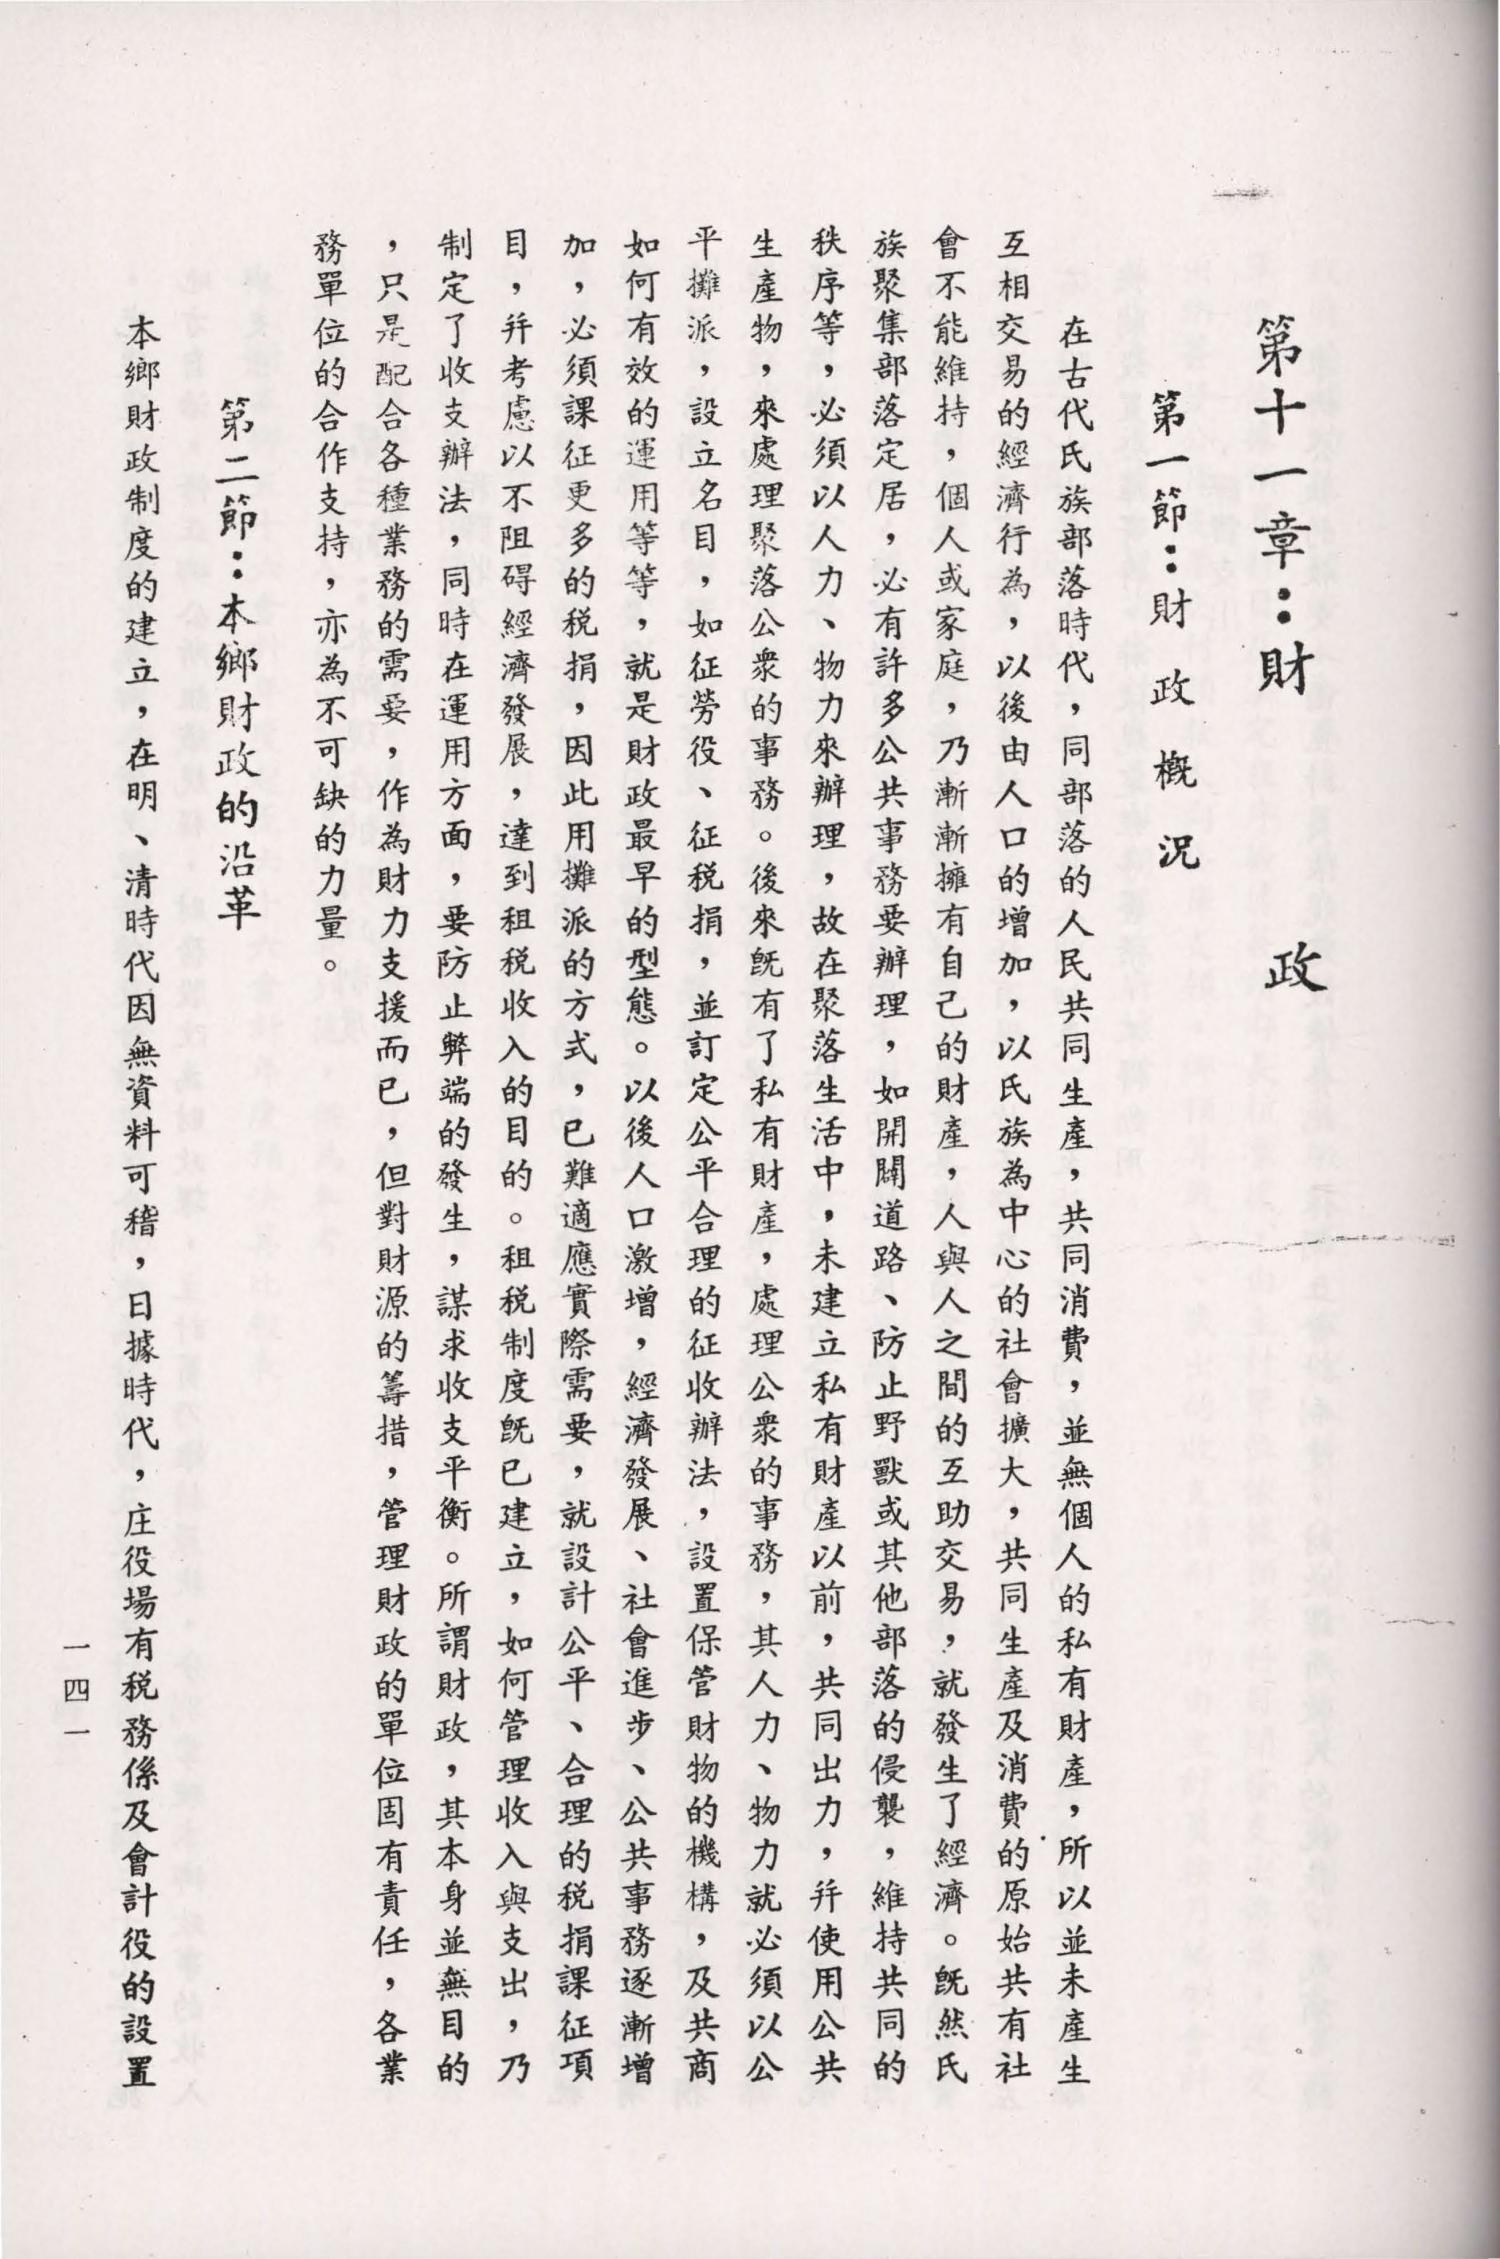 第十一章：財政
第一節：財政概況
在古代氏族部落時代，同部落的人民共同生產，共同消費，並無個人的私有財產，所以並未產生
互相交易的經濟行為，以後由人口的增加，以氏族為中心的社會擴大，共同生產及消費的原始共有社
會不能維持，個人或家庭，乃漸漸擁有自己的財產，人與人之間的互助交易，就發生了經濟。既然氏
族聚集部落定居，必有許多公共事務要辦理，如開闢道路、防止野獸或其他部落的侵襲，維持共同的
秩序等，必須以人力、物力來辦理，故在聚落生活中，未建立私有財產以前，共同出力，并使用公共
生產物，來處理聚落公衆的事務。後來既有了私有財產，處理公衆的事務，其人力、物力就必須以公
平攤派，設立名目，如征勞役、征税捐，並訂定公平合理的征收辦法，設置保管財物的機構，及共商
如何有效的運用等等，就是財政最早的型態。以後人口激增，經濟發展、社會進步、公共事務逐漸增
加，必須課征更多的税捐，因此用攤派的方式，已難適應實際需要，就設計公平、合理的税捐課征項
目，并考慮以不阻碍經濟發展，達到租税收入的目的。租税制度既已建立，如何管理收入與支出，乃
制定了收支辦法，同時在運用方面，要防止弊端的發生，謀求收支平衡。所謂財政，其本身並無目的
，只是配合各種業務的需要，作為財力支援而已，但對財源的籌措，管理財政的單位固有責任，各業
務單位的合作支持，亦為不可缺的力量。
第二節：本鄉財政的沿革
本鄉財政制度的建立，在明、清時代因無資料可稽，日據時代，庄役場有税務係及會計役的設置
一四一